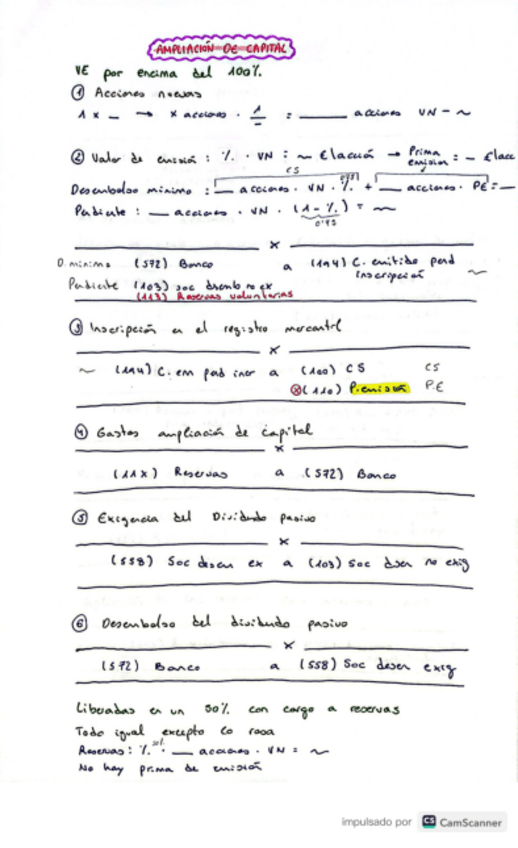 AMPLIACIÓN DE CAPITAL
VE por encima del 100%.
① Acciones nuevas
1 x _ → x acciones · 1/_ = ____ acciones VN = ~
② Valor de emisión : % · VN = ~ €/acción → Prima emisión = _ €/acc
CS
Desembolso mínimo : _ acciones · VN · % + _ acciones · PE = _
Pendiente : _ acciones · VN · (1 - %) = ~
0'75
x
D. mínimo (572) Banco a (194) C. emitido pend inscripción ~
Pendiente (103) soc desemb no ex
(113) Reservas voluntarias
③ Inscripción en el registro mercantil
x
~ (194) C. em pend incr a (100) CS CS
ⓧ (110) P. emisión P.E
④ Gastos ampliación de capital
x
(11X) Reservas a (572) Banco
⑤ Exigencia del Dividendo pasivo
x
(558) Soc desem ex a (103) Soc desem no exig
⑥ Desembolso del dividendo pasivo
x
(572) Banco a (558) Soc desem exig
Liberadas en un 50% con cargo a reservas
Todo igual excepto lo rosa
Reservas : % 50% · _ acciones · VN = ~
No hay prima de emisión
impulsado por CS CamScanner